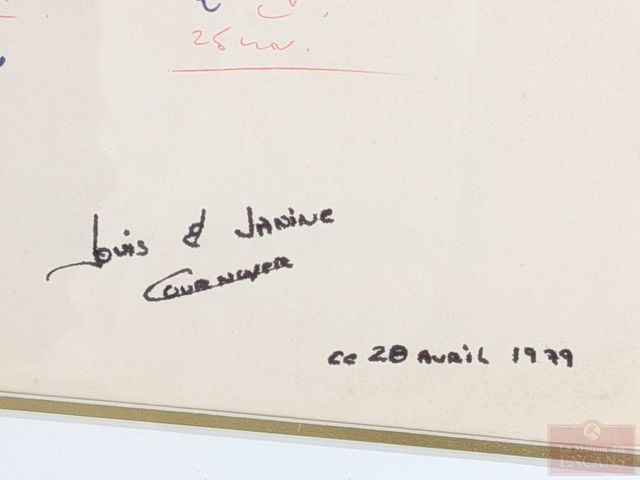 25 nov.
Louis & Janine
Cournoyer
ce 28 Avril 1979
ENCANS